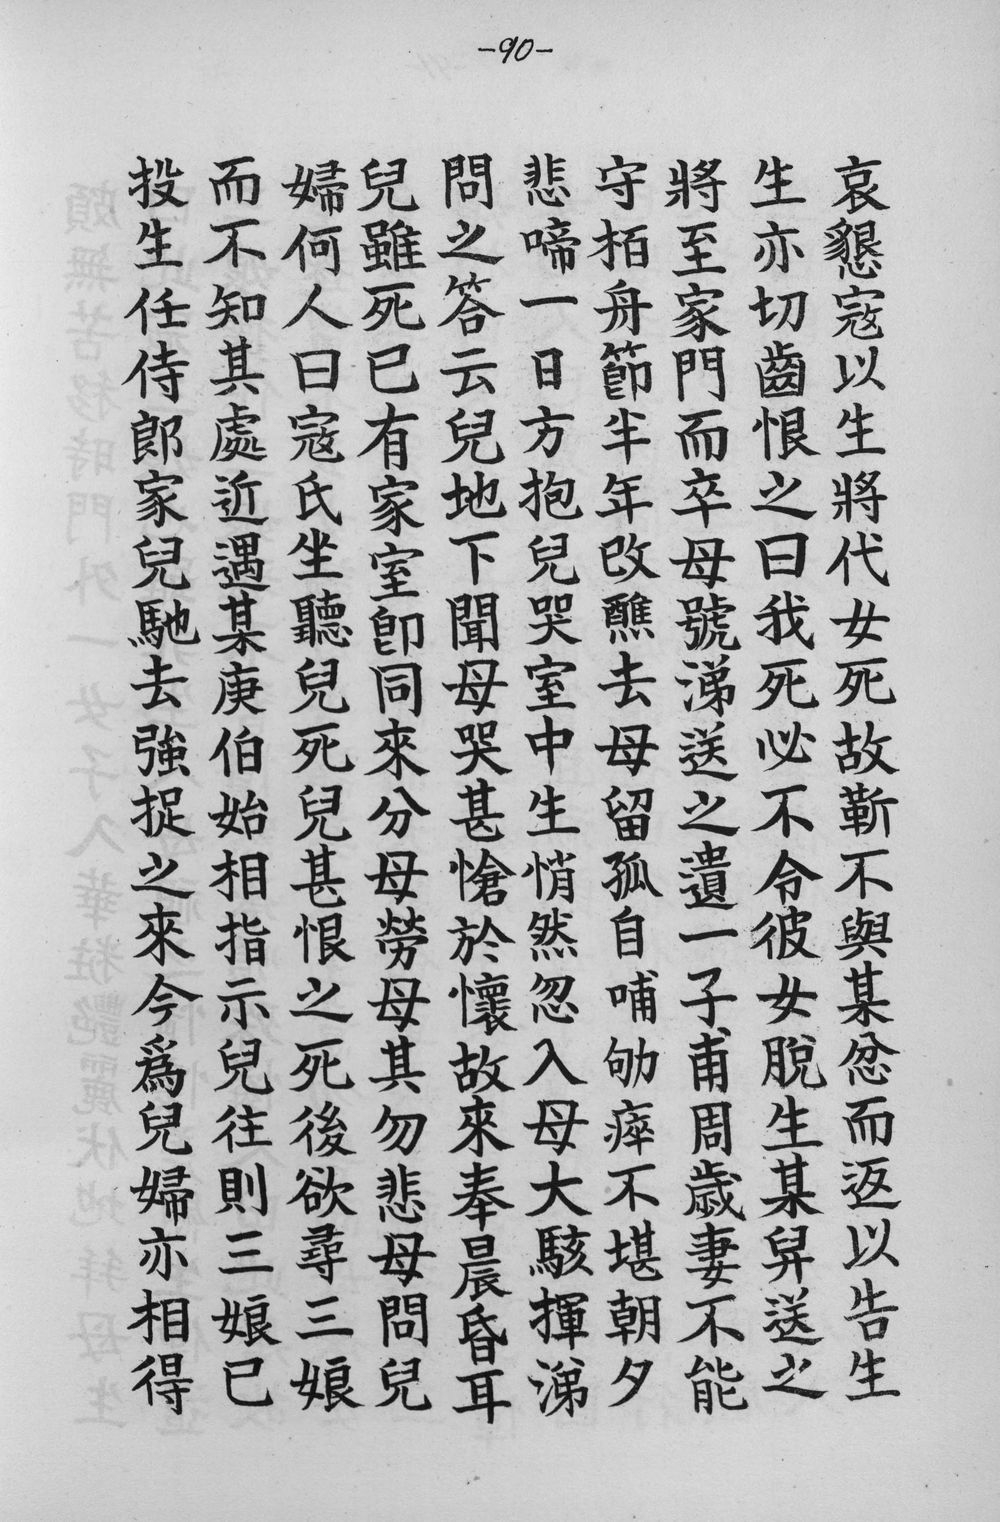 -90-
哀懇寇以生將代女死故靳不與某忿而返以告生
生亦切齒恨之曰我死必不令彼女脫生某舁送之
將至家門而卒母號涕送之遺一子甫周歲妻不能
守栢舟節半年改醮去母留孤自哺劬瘁不堪朝夕
悲啼一日方抱兒哭室中生悄然忽入母大駭揮涕
問之答云兒地下聞母哭甚愴於懷故來奉晨昏耳
兒雖死已有家室卽同來分母勞母其勿悲母問兒
婦何人曰寇氏坐聽兒死兒甚恨之死後欲尋三娘
而不知其處近遇某庚伯始相指示兒往則三娘已
投生任侍郎家兒馳去強捉之來今爲兒婦亦相得